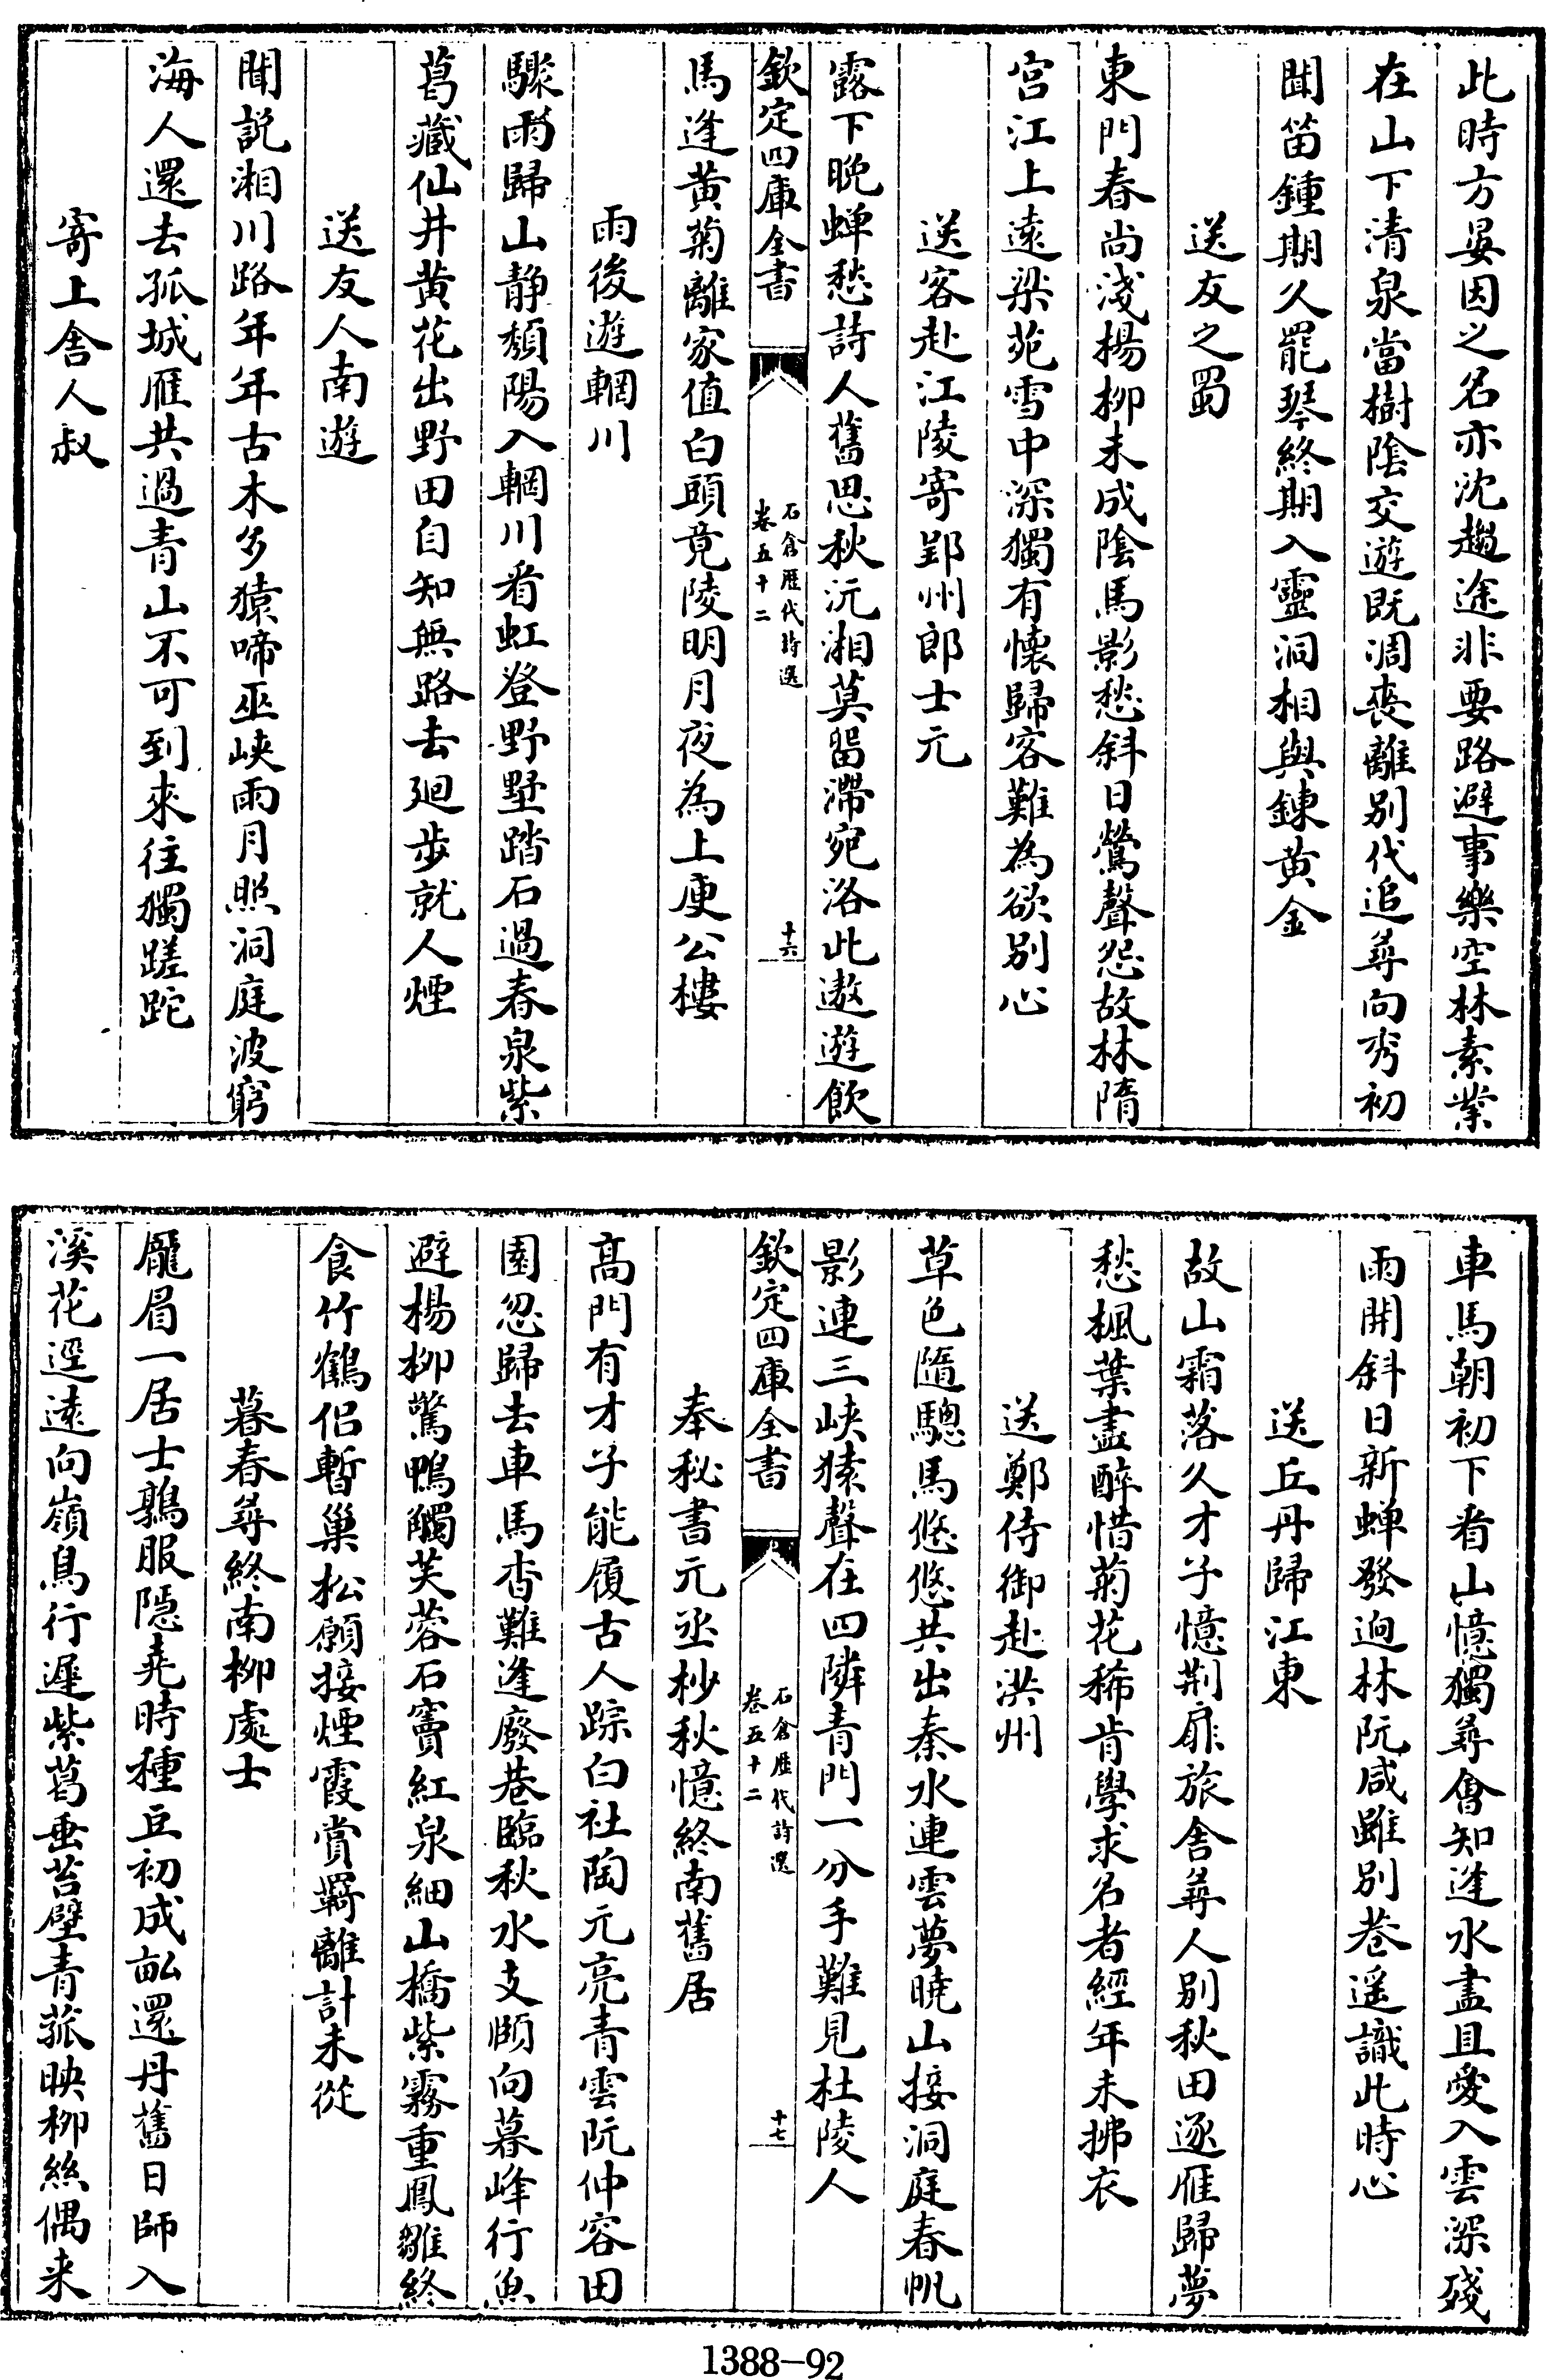 此時方晏因之名亦沈趨途非要路避事樂空林素業
在山下清泉當樹陰交遊既凋喪離别代追尋向秀初
聞笛鍾期久罷琴終期入靈洞相與鍊黄金
送友之蜀
東門春尚淺楊柳未成陰馬影愁斜日鶯聲怨故林隋
宫江上遠梁苑雪中深獨有懷歸客難為欲别心
送客赴江陵寄郢州郎士元
露下晚蟬愁詩人舊思秋沅湘莫留滯宛洛此遨遊飲
欽定四庫全書
石倉歷代詩選
卷五十二
十六
馬逢黄菊離家值白頭竟陵明月夜為上庾公樓
雨後遊輞川
驟雨歸山静頽陽入輞川看虹登野墅踏石過春泉紫
葛藏仙井黄花出野田自知無路去迴步就人煙
送友人南遊
聞説湘川路年年古木多猿啼巫峽雨月照洞庭波窮
海人還去孤城雁共過青山不可到來往獨蹉跎
寄上舍人叔
車馬朝初下看山憶獨尋會知逢水盡且愛入雲深殘
雨開斜日新蟬發逈林阮咸雖别巷遥識此時心
送丘丹歸江東
故山霜落久才子憶荆扉旅舍尋人别秋田逐雁歸夢
愁楓葉盡醉惜菊花稀肯學求名者經年未拂衣
送鄭侍御赴洪州
草色隨驄馬悠悠共出秦水連雲夢曉山接洞庭春帆
影連三峽猿聲在四隣青門一分手難見杜陵人
欽定四庫全書
石倉歷代詩選
卷五十二
十七
奉秘書元丞杪秋憶終南舊居
高門有才子能履古人踪白社陶元亮青雲阮仲容田
園忽歸去車馬杳難逢廢巷臨秋水支頤向暮峰行魚
避楊柳驚鴨觸芙蓉石竇紅泉細山橋紫霧重鳳雛終
食竹鶴侣暫巢松願接煙霞賞羇離計未從
暮春尋終南柳處士
龎眉一居士鶉服隠堯時種豆初成畝還丹舊日師入
溪花逕遠向嶺鳥行遲紫葛垂苔壁青菰映柳絲偶來
1388-92